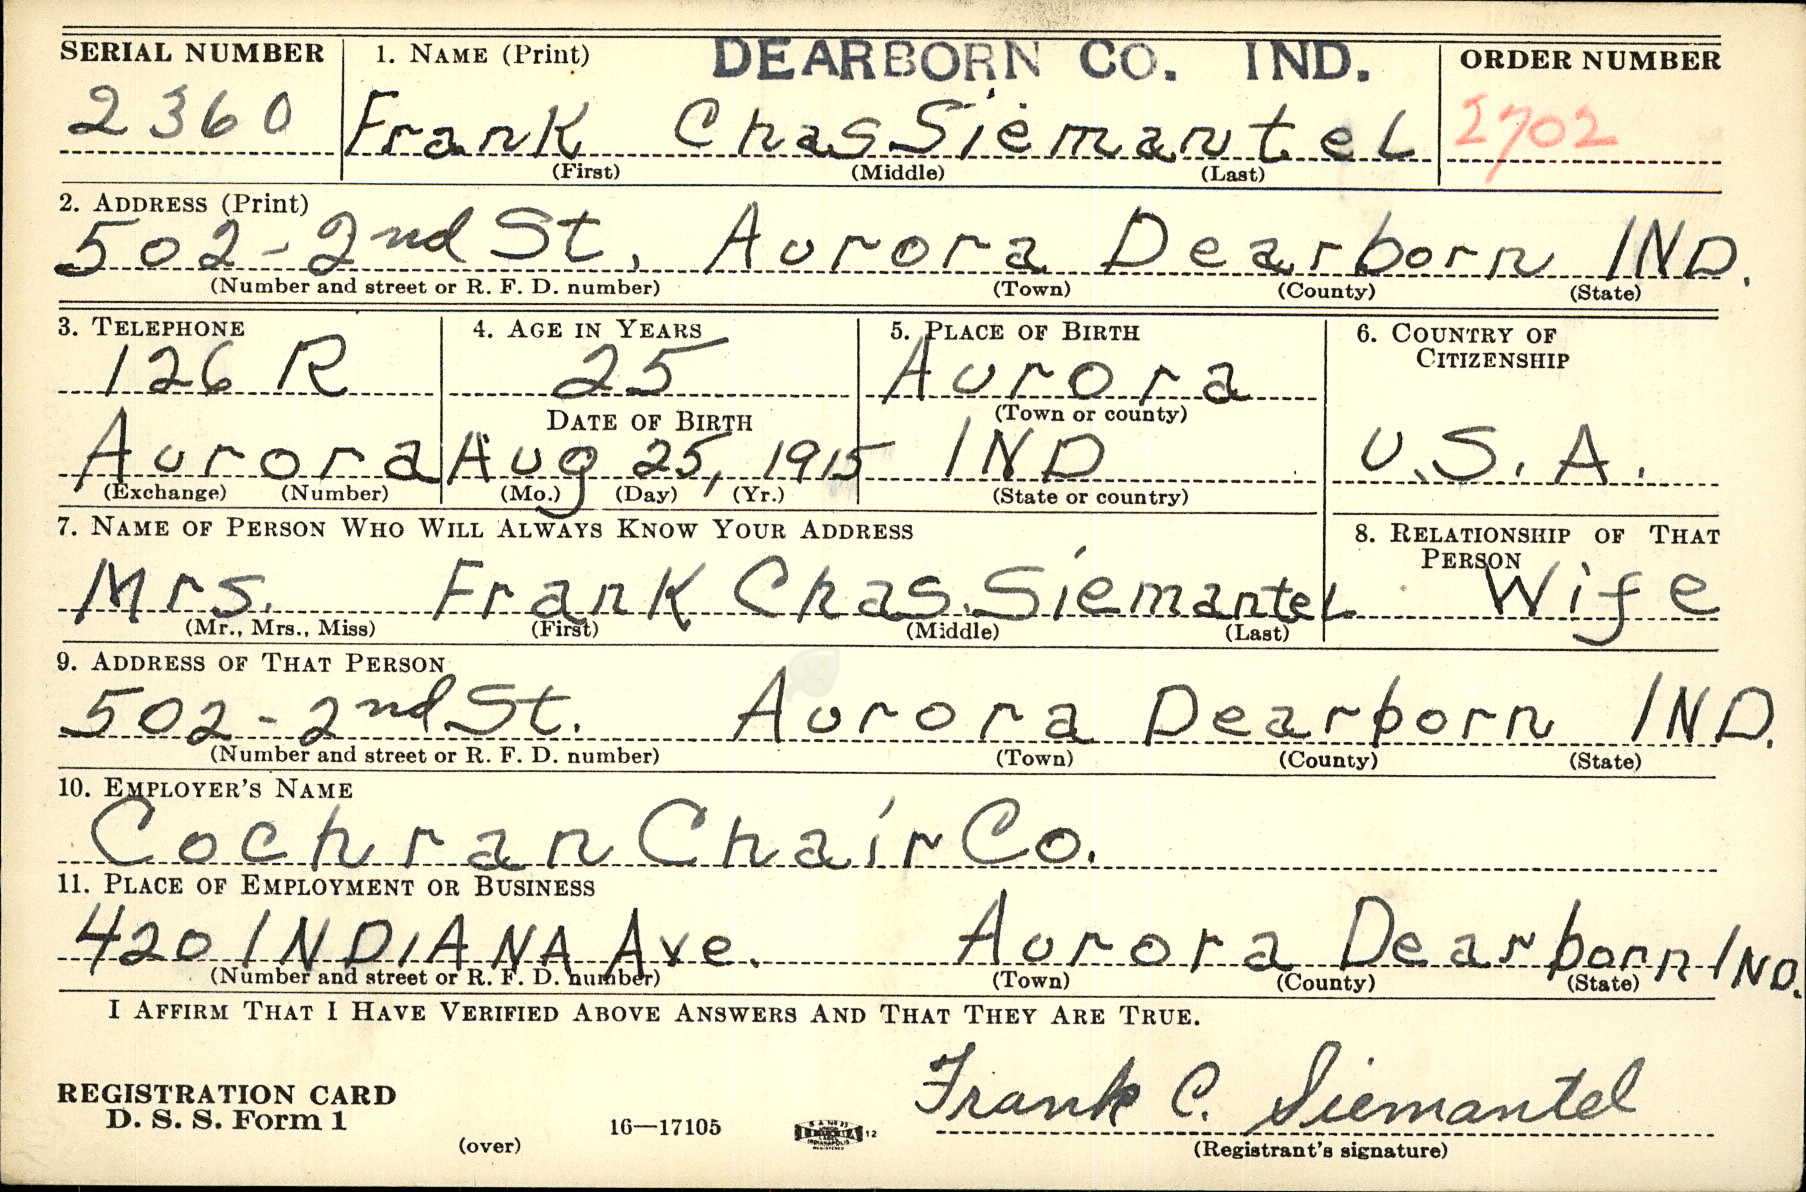 SERIAL NUMBER 1. NAME (Print) DEARBORN CO. IND. ORDER NUMBER
2360 Frank Chas Siemantel 2702
(First) (Middle) (Last)
2. ADDRESS (Print)
502-2nd St. Aurora Dearborn IND.
(Number and street or R. F. D. number) (Town) (County) (State)
3. TELEPHONE 4. AGE IN YEARS 5. PLACE OF BIRTH 6. COUNTRY OF CITIZENSHIP
126 R 25 Aurora
DATE OF BIRTH (Town or county)
Aurora Aug 25, 1915 IND U.S.A.
(Exchange) (Number) (Mo.) (Day) (Yr.) (State or country)
7. NAME OF PERSON WHO WILL ALWAYS KNOW YOUR ADDRESS 8. RELATIONSHIP OF THAT PERSON
Mrs. Frank Chas. Siemantel Wife
(Mr., Mrs., Miss) (First) (Middle) (Last)
9. ADDRESS OF THAT PERSON
502-2nd St. Aurora Dearborn IND.
(Number and street or R. F. D. number) (Town) (County) (State)
10. EMPLOYER'S NAME
Cochran Chair Co.
11. PLACE OF EMPLOYMENT OR BUSINESS
420 INDIANA Ave. Aurora Dearborn IND.
(Number and street or R. F. D. number) (Town) (County) (State)
I AFFIRM THAT I HAVE VERIFIED ABOVE ANSWERS AND THAT THEY ARE TRUE.
REGISTRATION CARD Frank C. Siemantel
D. S. S. Form 1
(over) 16—17105 12 (Registrant's signature)